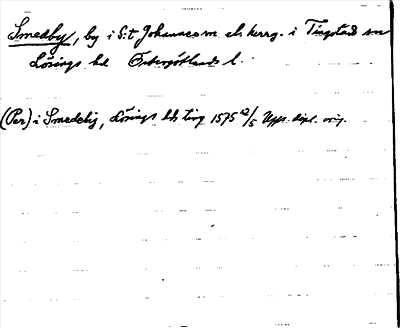 Smedby, by i S:t Johannes sn el. herrg. i Tingstad sn
Lösings hd Östergötlands l.
(Per) i Smedeby, Lösings hds ting 1575 12/5 Upps. dipl. orig.